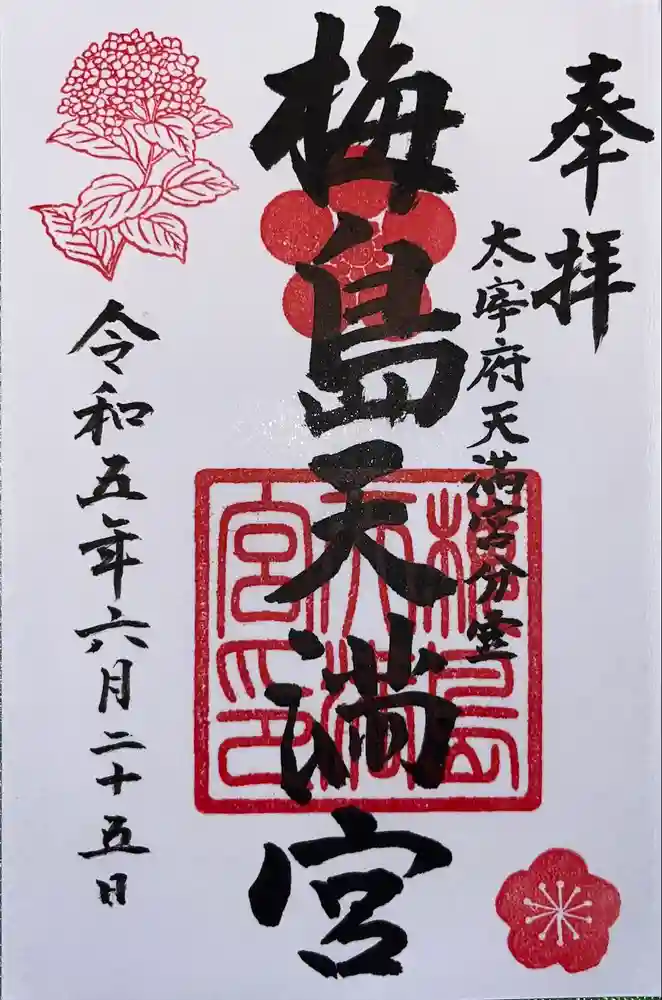 奉拝
太宰府天満宮分霊
梅島天満宮
梅島
天満
宮印
令和五年六月二十五日